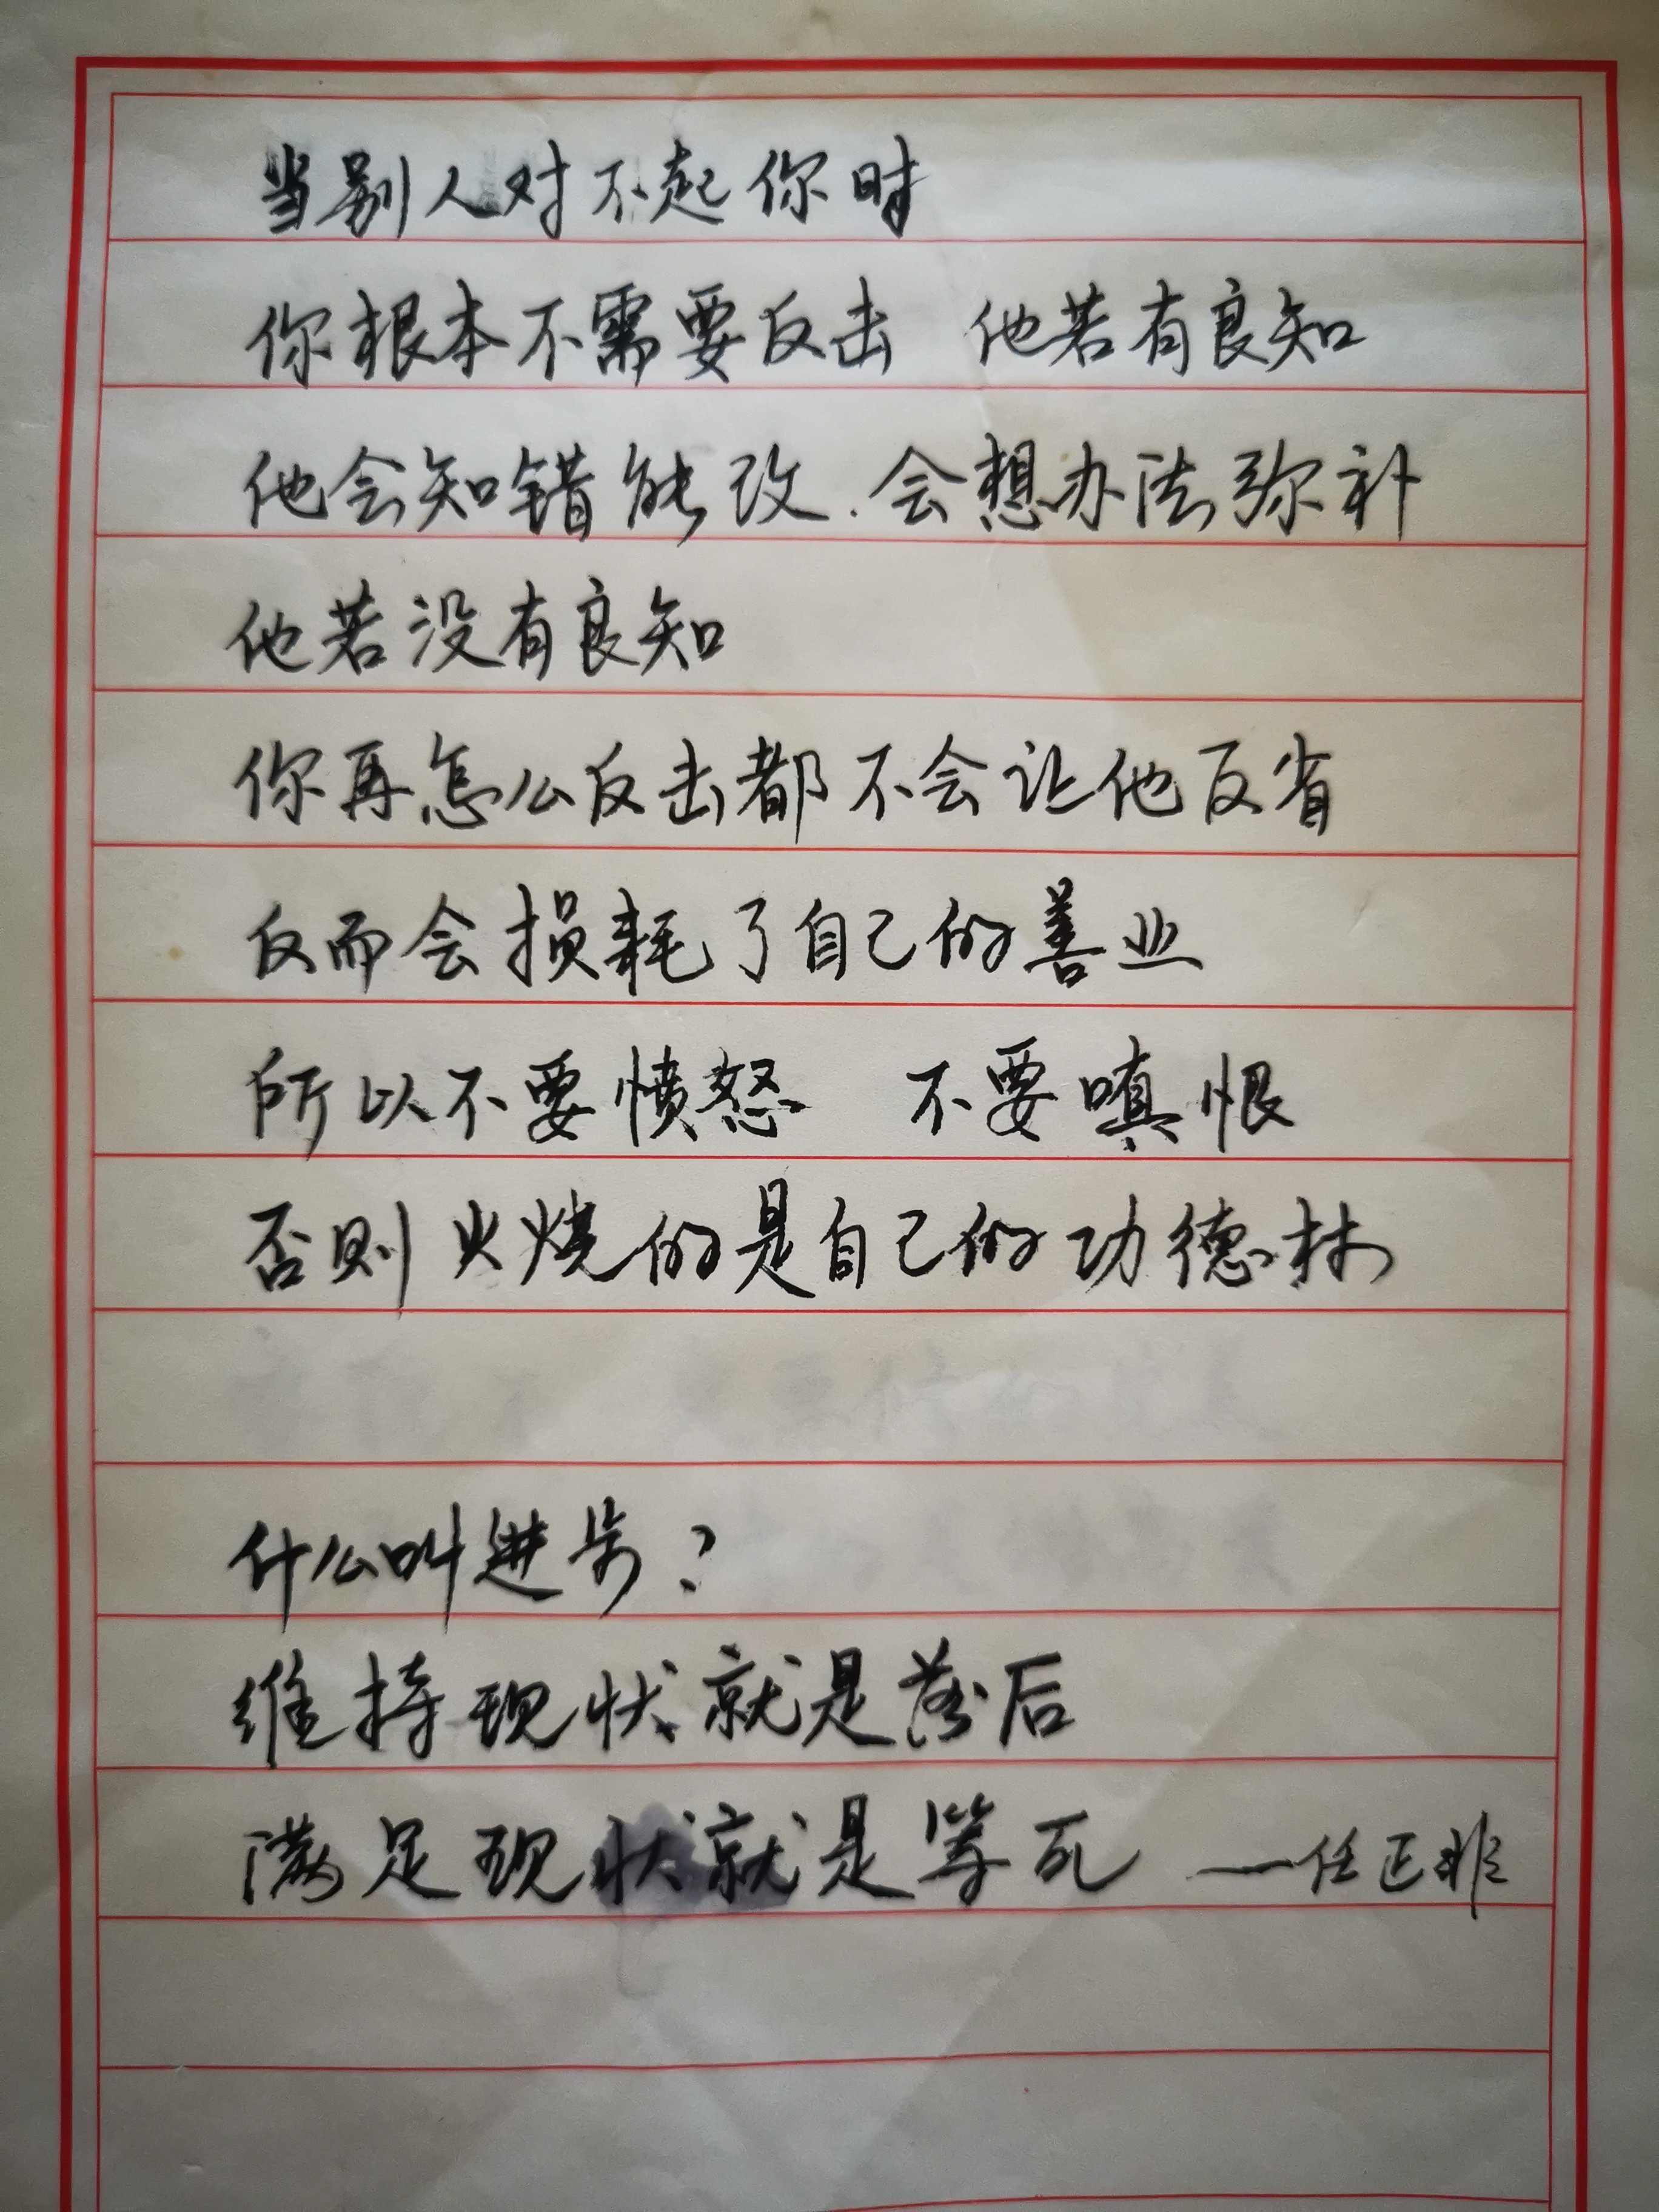 当别人对不起你时
你根本不需要反击 他若有良知
他会知错能改.会想办法弥补
他若没有良知
你再怎么反击都不会让他反省
反而会损耗了自己的善业
所以不要愤怒 不要嗔恨
否则火烧的是自己的功德林
什么叫进步?
维持现状就是落后
满足现状就是等死 ——任正非